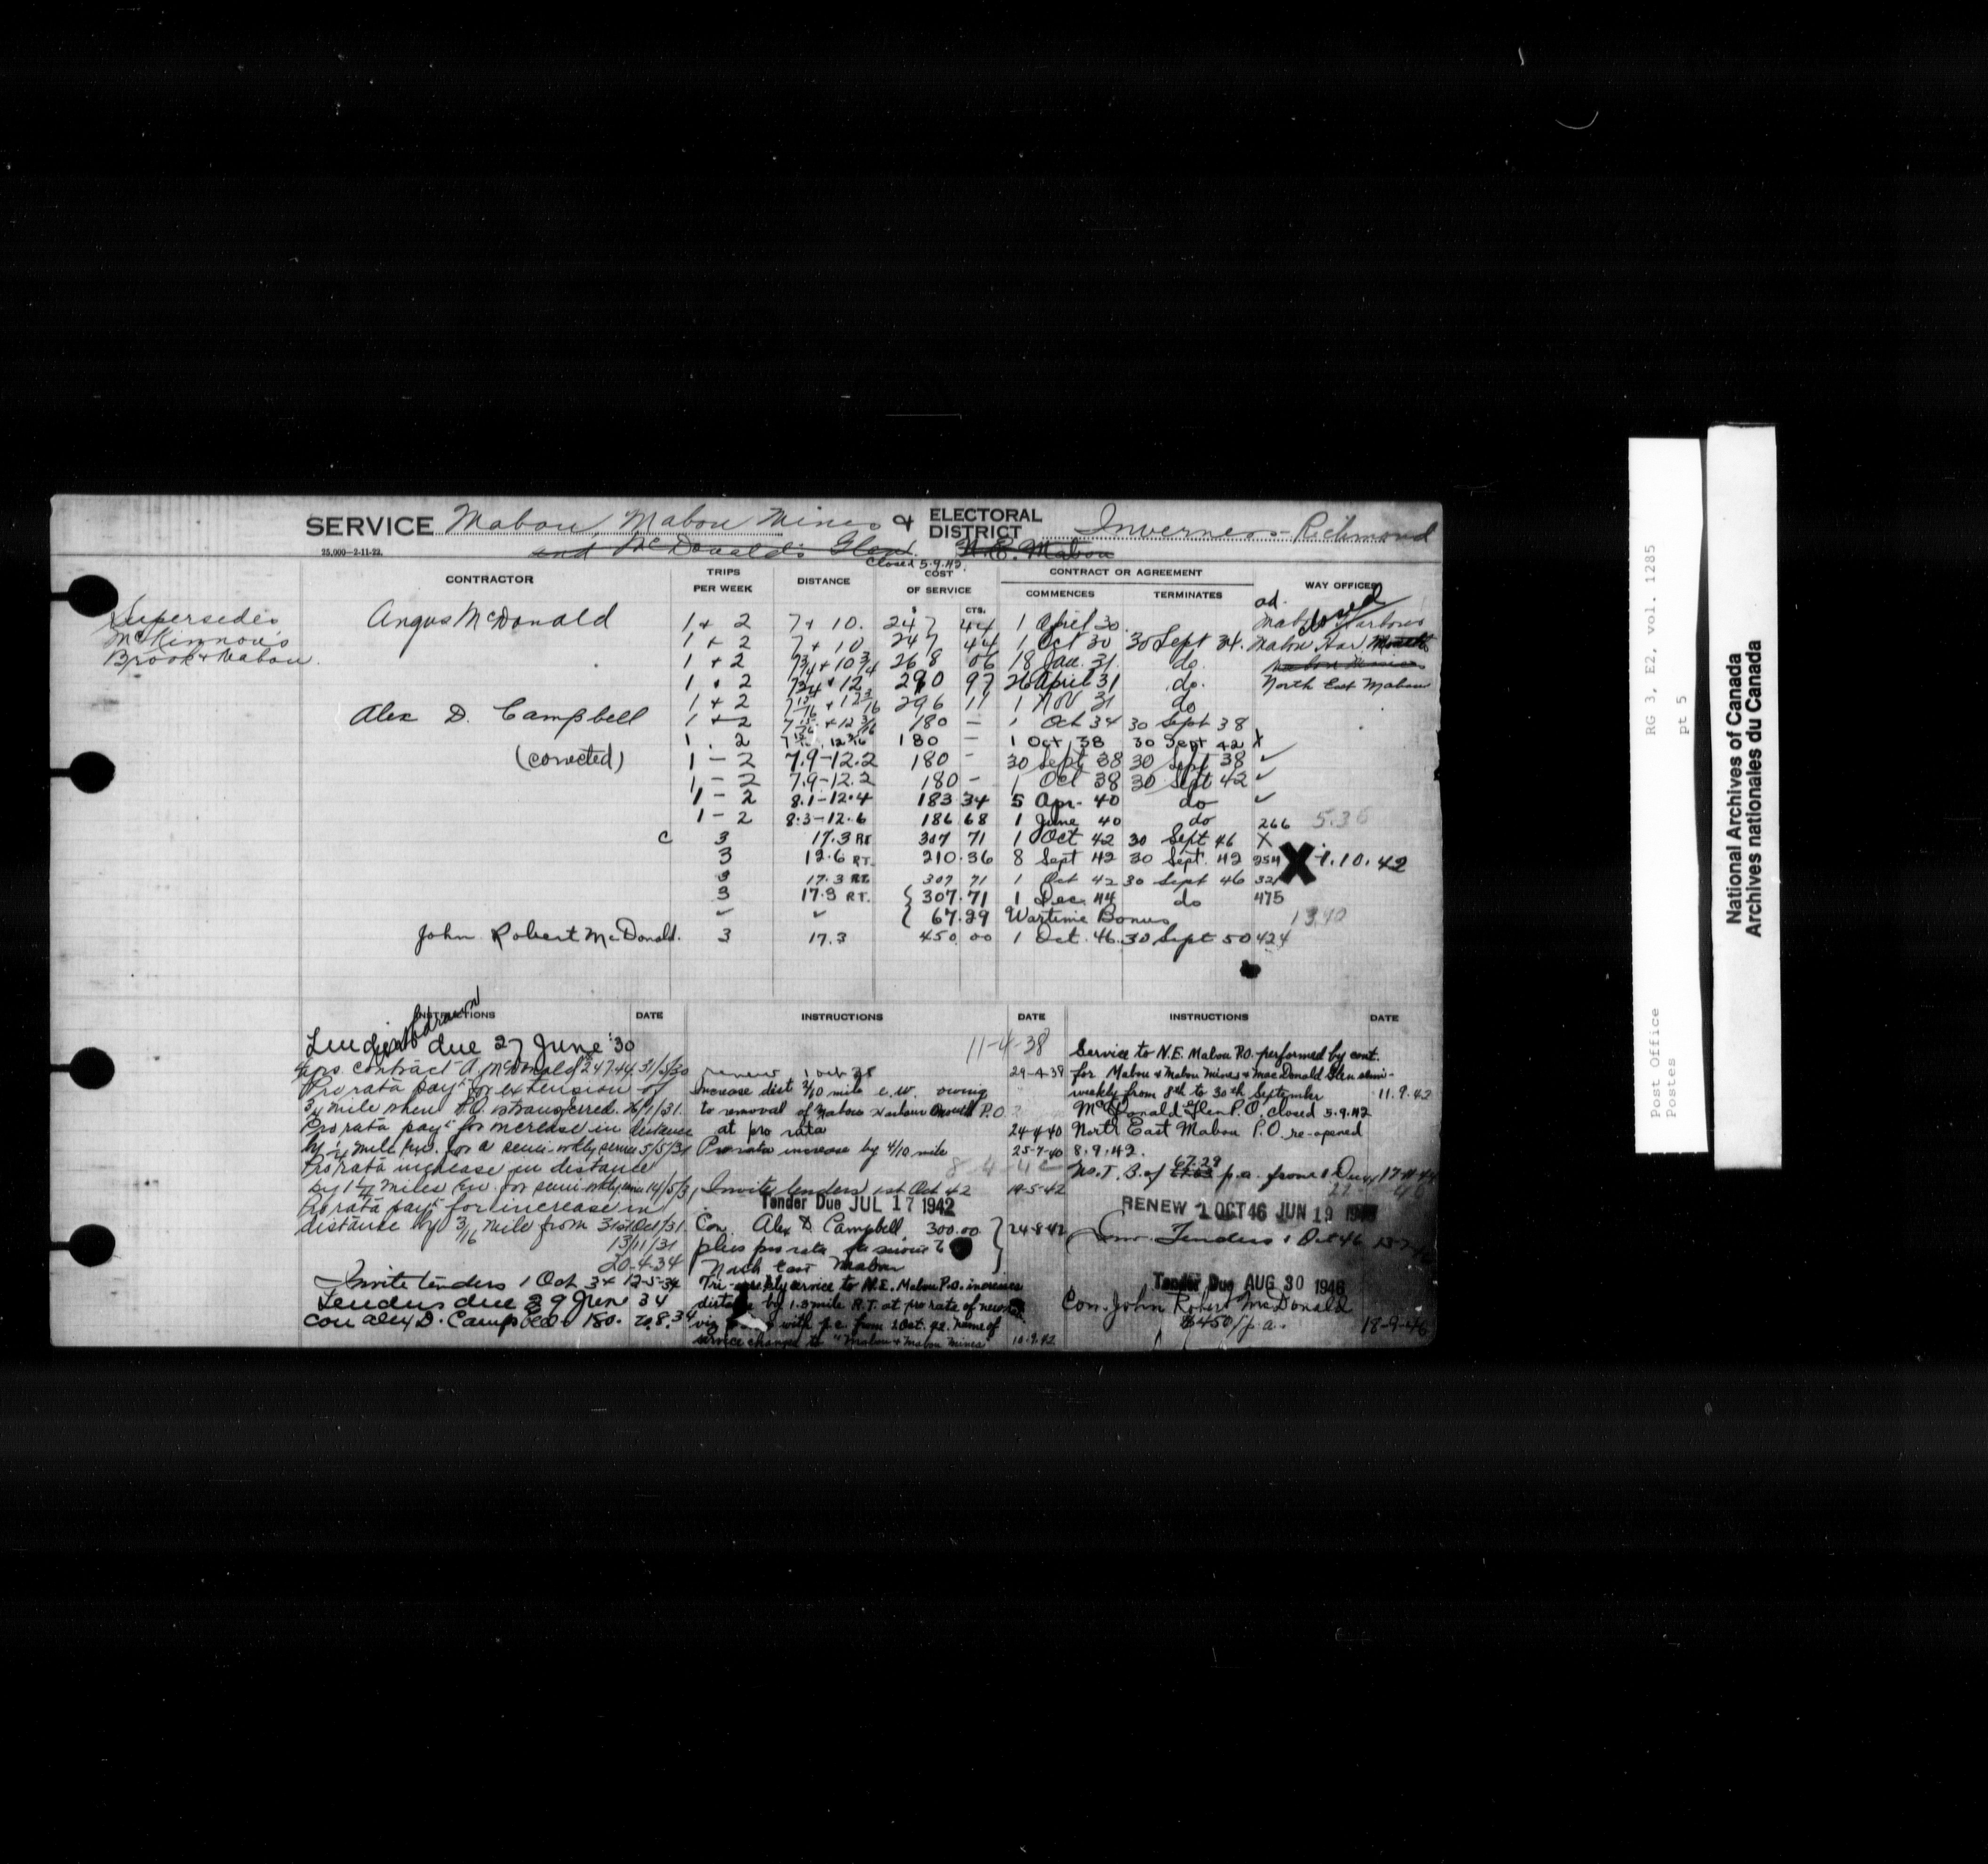 SERVICE Mabou, Mabou Mines & ELECTORAL DISTRICT Inverness-Richmond
25,000—2-11-22. and McDonald's Glen. N.E. Mabou
Closed 5.9.42.
CONTRACTOR TRIPS PER WEEK DISTANCE COST OF SERVICE CONTRACT OR AGREEMENT WAY OFFICES
$ CTS. COMMENCES TERMINATES
Supersedes
McKinnon's
Brook & Mabou.
ad. closed
Angus McDonald 1 + 2 7 + 10. 247 44 1 April 30. Mabou Harbour
1 + 2 7 + 10 247 44 1 Oct 30 30 Sept 34. Mabou Har Mouth
1 + 2 7¾ + 10¾ 268 06 18 Jan. 31. do. Mabou Mines
1 + 2 7¾ + 12 290 97 26 April 31 do. North East Mabou
1 + 2 7 15/16 + 12 3/16 296 11 1 Nov 31 do
Alex D. Campbell 1 + 2 7 15/16 + 12 3/16 180 — 1 Oct 34 30 Sept 38
1 . 2 7 15/16 . 12 3/16 180 — 1 Oct 38 30 Sept 42 X
(corrected) 1 – 2 7.9–12.2 180 – 30 Sept 38 30 Sept 38 ✓
1 – 2 7.9–12.2 180 – 1 Oct 38 30 Sept 42 ✓
1 – 2 8.1–12.4 183 34 5 Apr. 40 do ✓
1 – 2 8.3–12.6 186 68 1 June 40 do 266
C 3 17.3 RT 307 71 1 Oct 42 30 Sept 46 X
3 12.6 RT. 210.36 8 Sept 42 30 Sept. 42 254 X 1.10.42
3 17.3 RT. 307 71 1 Oct 42 30 Sept 46 321
3 17.3 RT. 307.71 1 Dec. 44 do 475
✓ ✓ 67.29 Wartime Bonus
John Robert McDonald. 3 17.3 450 00 1 Oct. 46. 30 Sept 50 424
INSTRUCTIONS DATE
withdrawn
Tenders due 27 June '30
contract A. McDonald 247.44 31/5/30
Pro rata payt for extension of
¾ mile when P.O. is transferred. 26/1/31.
Pro rata payt for increase in distance
5/5/31
Pro rata increase in distance
by 1¼ miles
Pro rata payt for increase in
distance by 3/16 mile from 31st Oct/31.
13/11/31
20-4-34
Invite tenders 1 Oct 34 12-5-34
Tenders due 29 June 34
Con Alex D. Campbell 180. 20.8.34
INSTRUCTIONS DATE
11-4-38
renew 1 Oct 38 29-4-38
Increase dist 2/10 mile e.w. owing
to removal of Mabou Harbour Mouth P.O.
at pro rata 24-4-40
Pro rata increase by 4/10 mile 25-7-40
Invite tenders 1st Oct 42 19-5-42
Tender Due JUL 17 1942
Con. Alex D Campbell, 300.00 24-8-42
plus pro rata for service to
North East Mabou
Tri-weekly service to N.E. Mabou P.O. increases
distance by R.T. at pro rate of
with p.c. from 1 Oct. 42. name of
service changed to "Mabou & Mabou Mines" 10.9.42
INSTRUCTIONS DATE
Service to N.E. Mabou P.O. performed by cont.
for Mabou & Mabou Mines & MacDonald Glen semi-
weekly from 8th to 30th September 11.9.42
McDonald Glen P.O. closed 5.9.42
North East Mabou P.O. re-opened
8.9.42.
W.T.B. of 67.29 p.a. from 1 Dec 17-11-44
RENEW 1 OCT 46 JUN 19
Inv. Tenders 1 Oct 46
Tender Due AUG 30 1946
Con. John Robert McDonald
$450/p.a. 18-9-46
Post Office RG 3, E2, vol. 1285
Postes pt 5
National Archives of Canada
Archives nationales du Canada